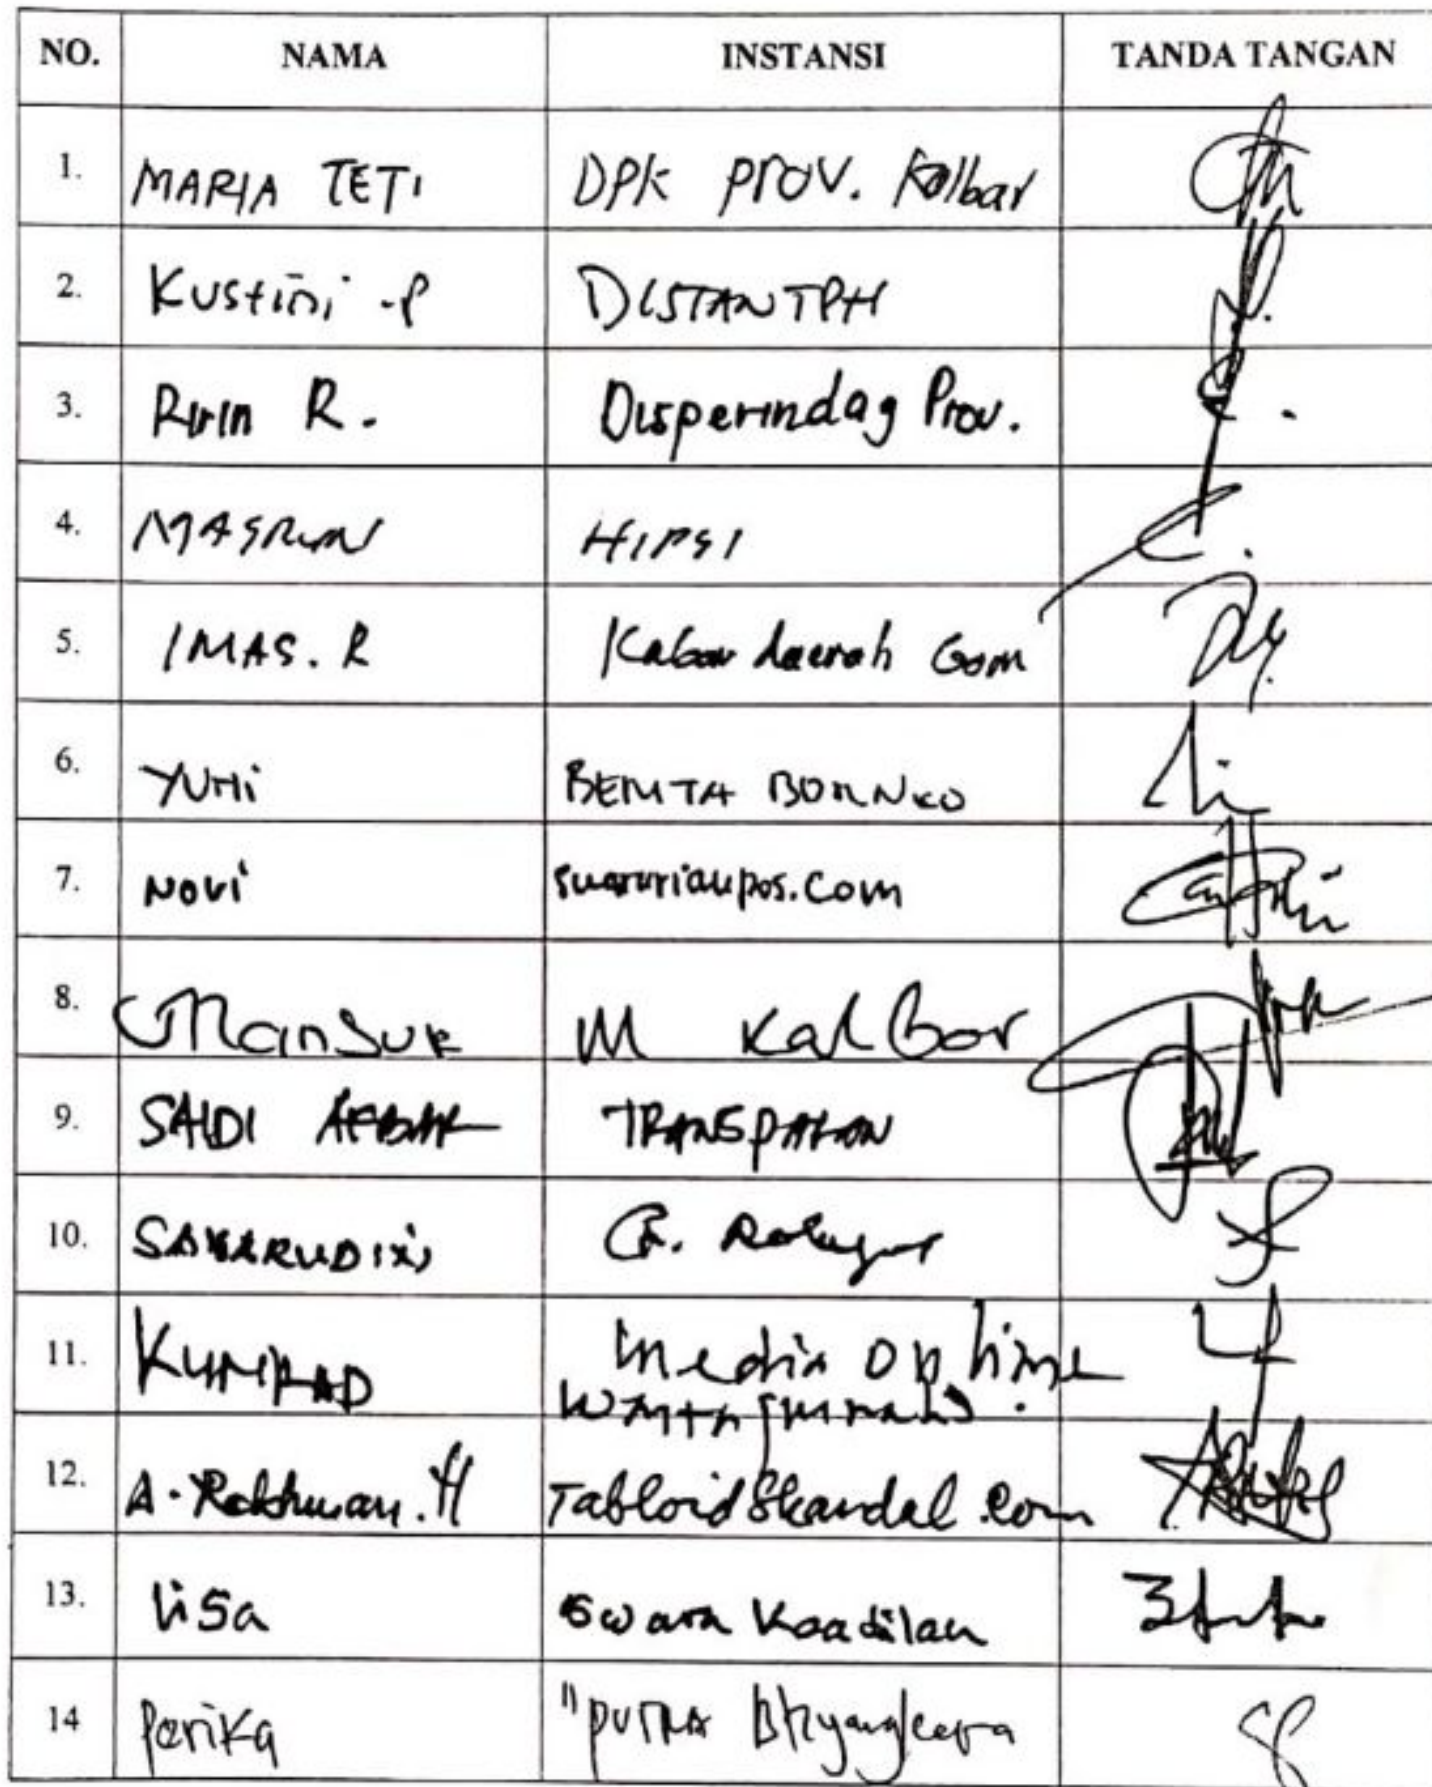 NO. NAMA INSTANSI TANDA TANGAN
1. MARIA TETI DPK PROV. Kalbar
2. Kustini .P DISTAN TPH
3. Ririn R. Disperindag Prov.
4. MASRUN HIPSI
5. IMAS. R Kabar daerah Com
6. YUNI BERITA BORNEO
7. NOVI suarariaupos.com
8. Mansur M Kalbar
9. SAIDI AKBAR TRANSPARAN
10. SAKARUDIN
11. media on line
12. A. Rakhman. H Tabloid Skandal.com
13. lisa Swara Keadilan
14 Perika "PUTRA Bhyangkara